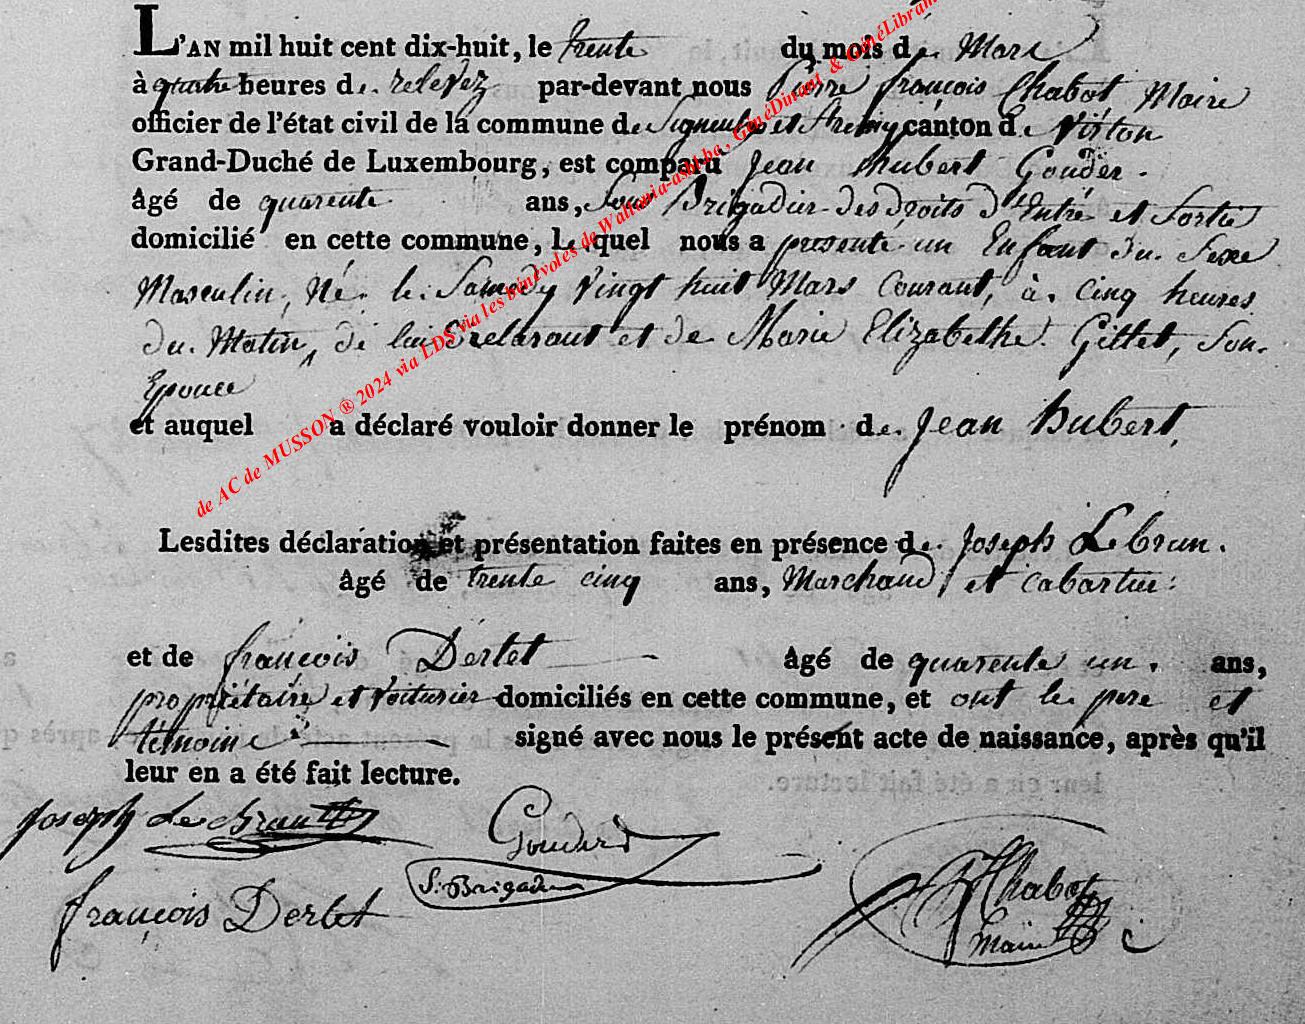 L'AN mil huit cent dix-huit, le trente du mois de Mars
à quatre heures de relevez par-devant nous Pierre françois Chabot Maire
officier de l'état civil de la commune de Signeulx et St remy canton de Virton
Grand-Duché de Luxembourg, est comparu Jean hubert Gouder.
âgé de quarente ans, Sous Brigadier des droits d'Entré et Sortie
domicilié en cette commune, Le quel nous a presenté un Enfant du Sexe
Masculin, Né le Samedy Vingt huit Mars Courant, à Cinq heures
du Matin, de lui Declarant et de Marie Elizabethe Gillet, Son
Epouce
et auquel a déclaré vouloir donner le prénom de Jean hubert,
Lesdites déclaration et présentation faites en présence de Joseph Lebrun.
âgé de trente cinq ans, Marchand et Cabartier
et de françois Dertet âgé de quarente un. ans,
propriétaire et Voiturier domiciliés en cette commune, et ont le pere et
témoins signé avec nous le présent acte de naissance, après qu'il
leur en a été fait lecture.
Joseph Le Brun
Gouder
S: Brigadier
françois Dertet
Chabot
Maire
de AC de MUSSON ® 2024 via LDS via les bénévoles de Wallonia-asbl.be, GénéDinant & GénéLibram